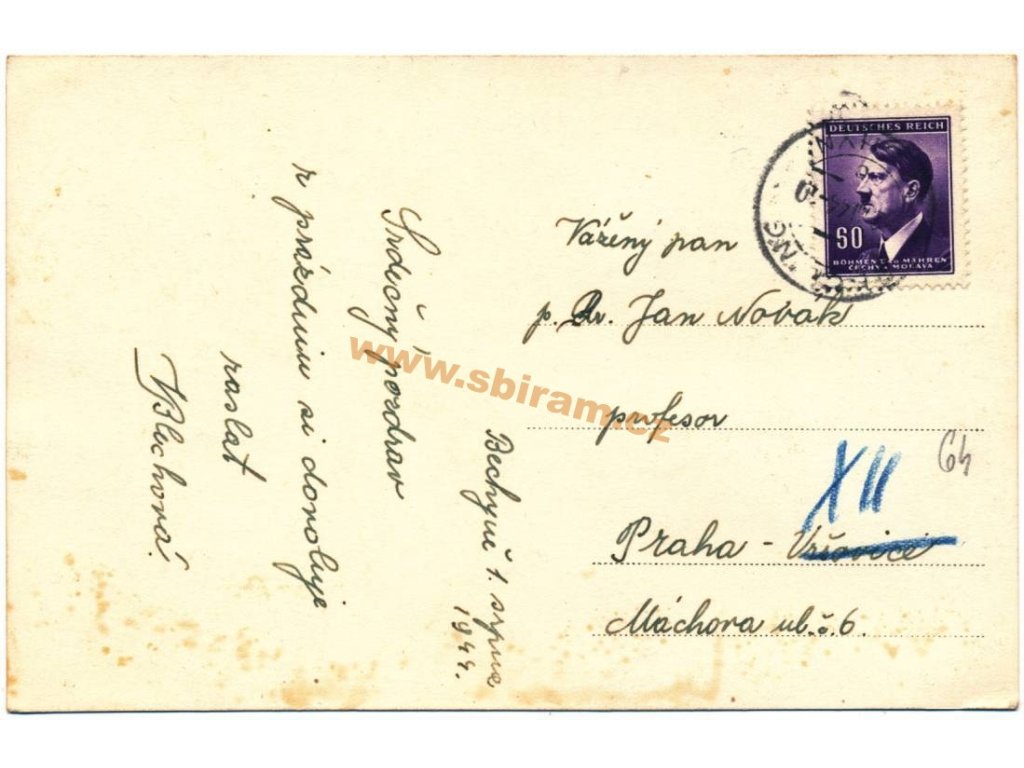 Bechyně 1. srpna
1944.
Srdečný pozdrav
z prázdnin si dovoluje
zaslat
VBlechová.
DEUTSCHES REICH
60
BÖHMEN UND MÄHREN
ČECHY A MORAVA
Vážený pan
p. Dr. Jan Novák
profesor
XII
64
Praha - Vršovice
Máchova ul. č. 6.
www.sbiram.cz